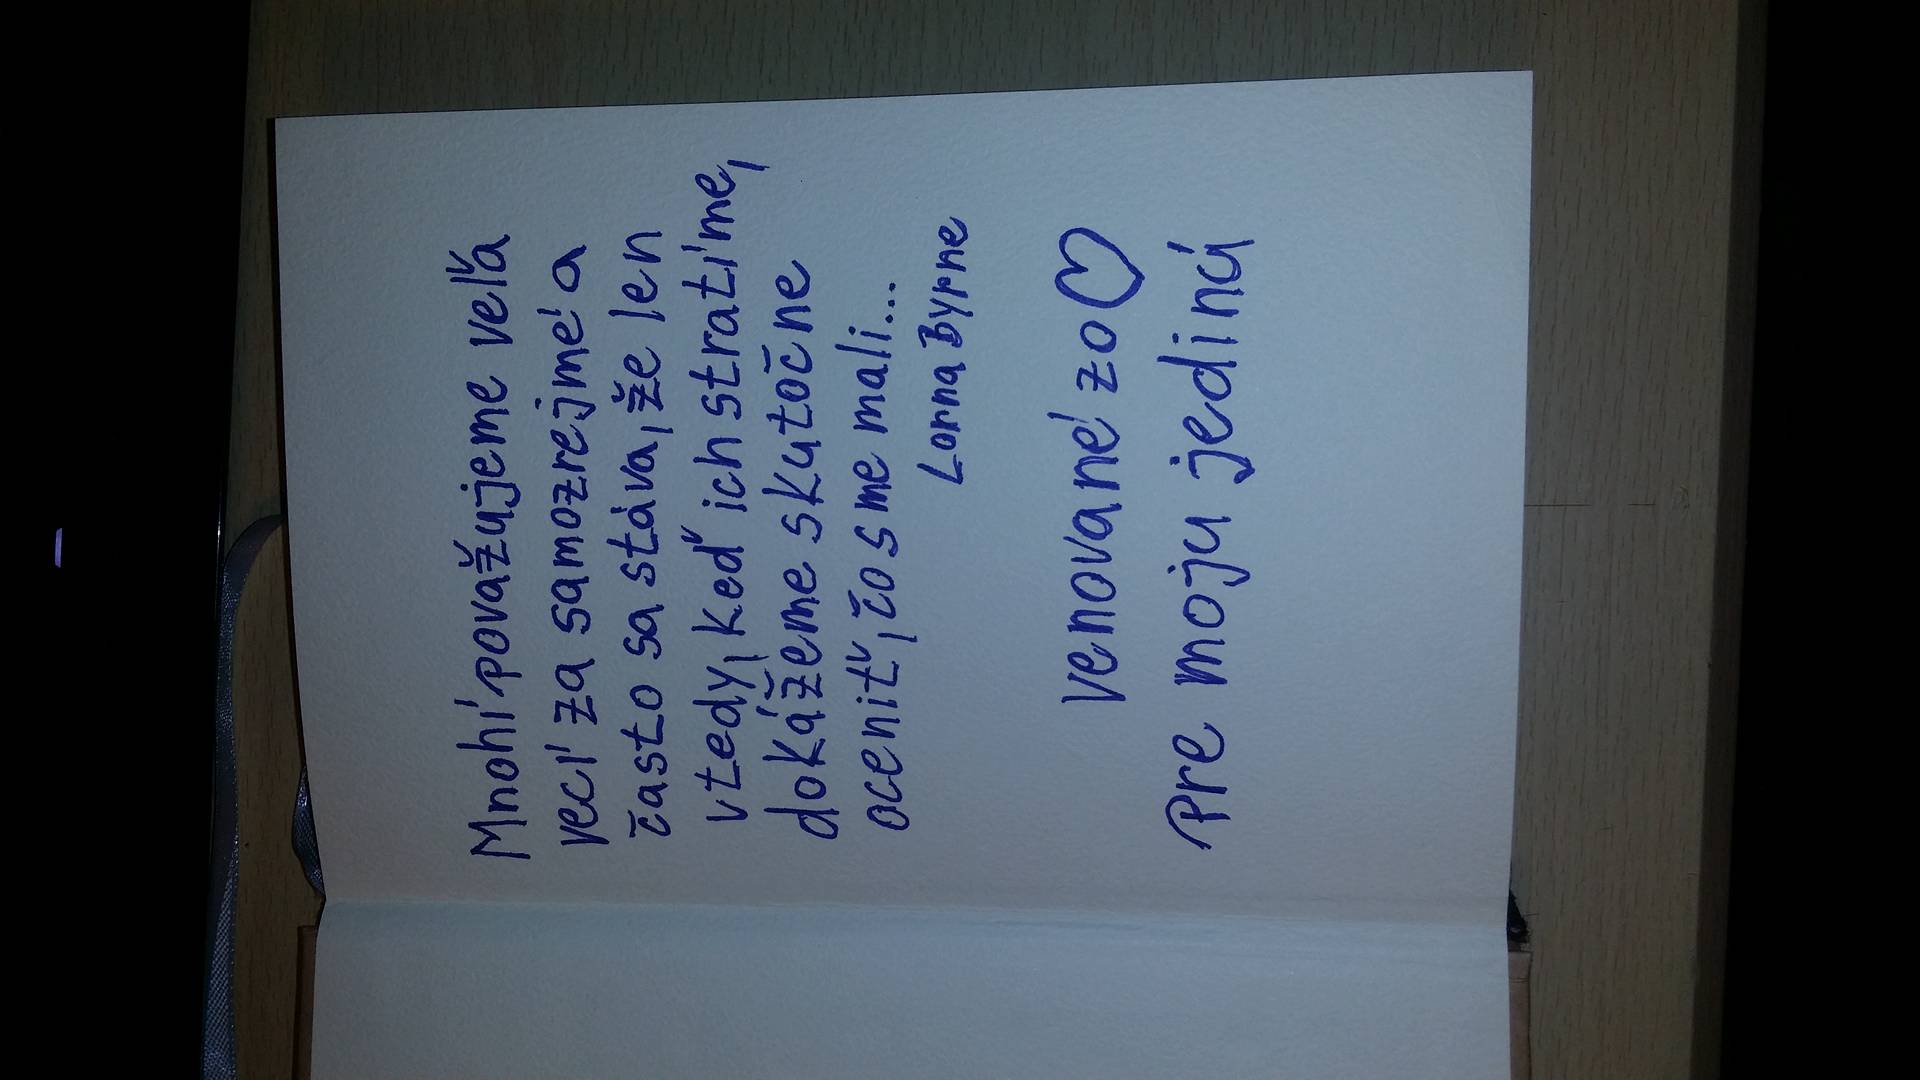 Mnohí považujeme veľa
vecí za samozrejmé a
často sa stáva, že len
vtedy, keď ich stratíme,
dokážeme skutočne
oceniť, čo sme mali...
Lorna Byrne
venované zo ♡
Pre moju jedinú